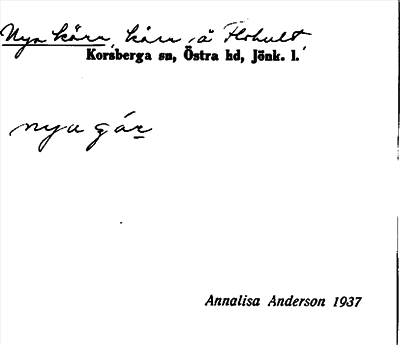 Nya kärr, kärr, å Flohult
Korsberga sn, Östra hd, Jönk. l.
nya
Annalisa Anderson 1937